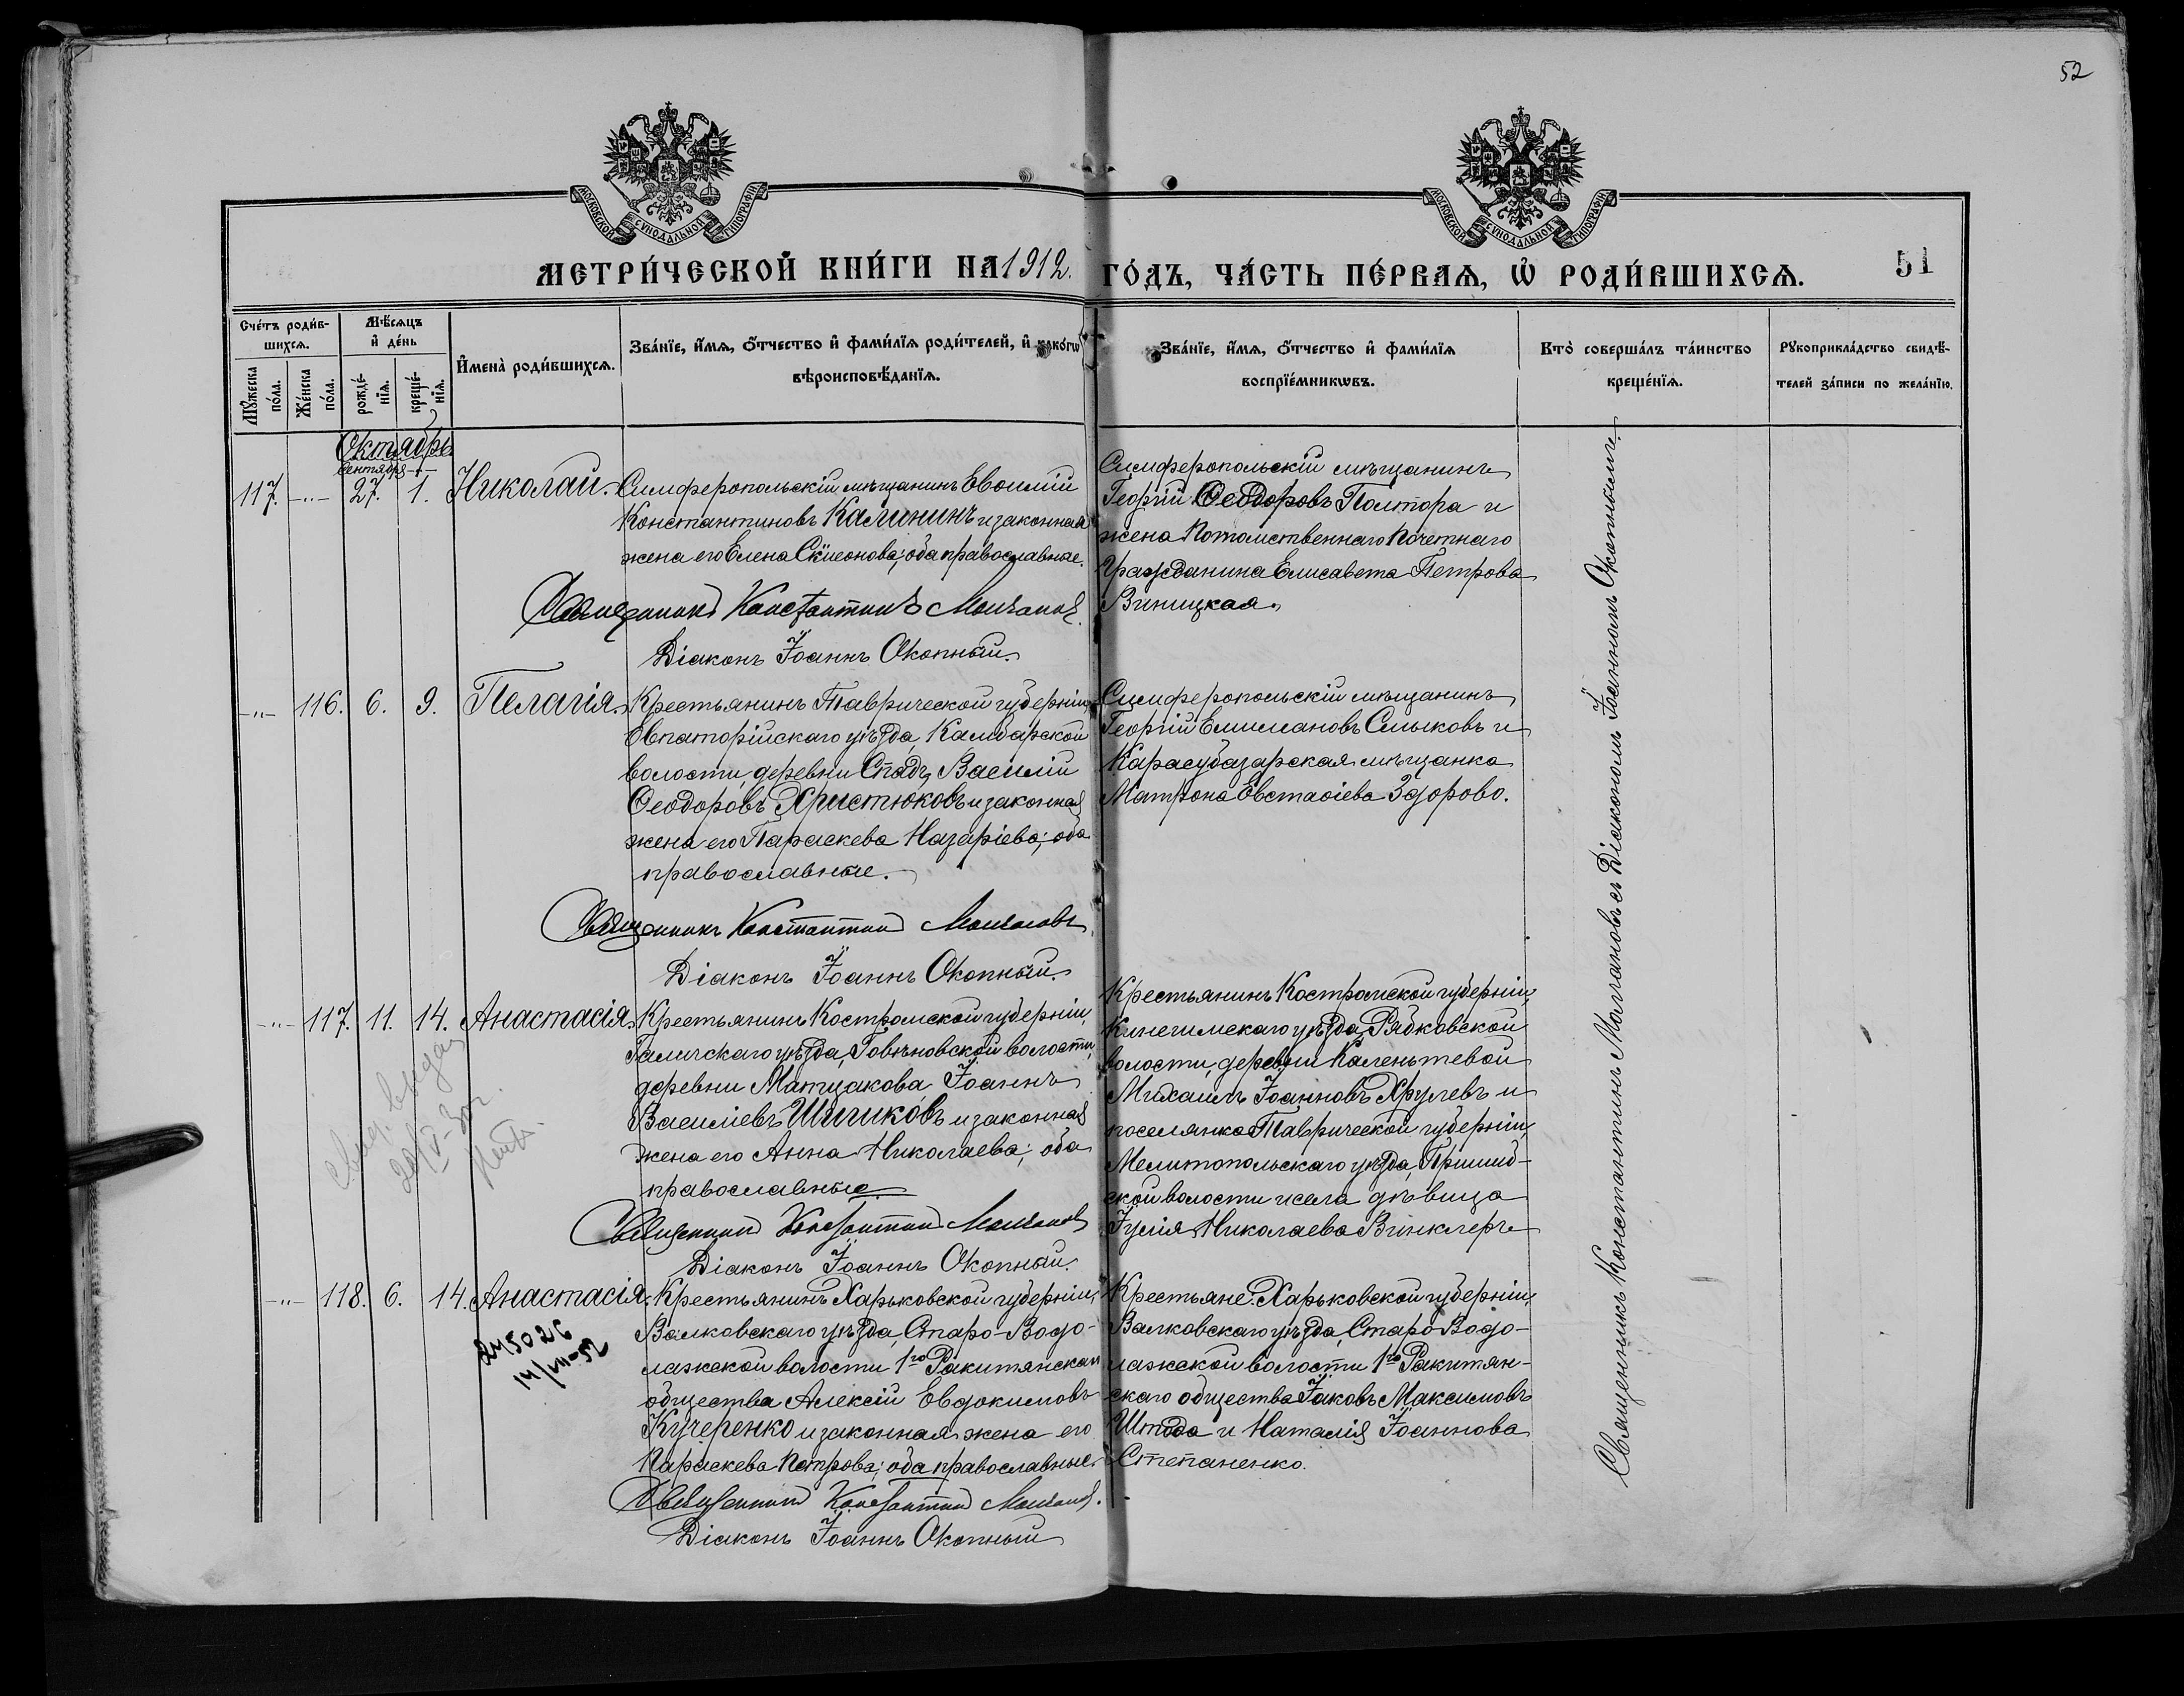 52
МОСКОВСКОЙ СѴНОДАЛЬНОЙ ТИПОГРАФІИ
МОСКОВСКОЙ СѴНОДАЛЬНОЙ ТИПОГРАФІИ
МЕТРИ́ЧЕСКОЙ КНИ́ГИ НА 1912. ГО́ДЪ, ЧА́СТЬ ПЕ́РВАѦ, Ѽ РОДИ́ВШИХСѦ.
51
Сче́тъ роди́в-
шихсѧ.
Мꙋ́жеска
по́ла.
Же́нска
по́ла.
Мѣ́сѧцъ
и҆ де́нь
рожде́-
нїѧ.
креще́-
нїѧ.
И҆мена̀ роди́вшихсѧ.
Зва́нїе, и҆́мѧ, ѻ҆́тчество и҆ фами́лїѧ роди́телей, и҆ како́гѡ
вѣроисповѣ́данїѧ.
Зва́нїе, и҆́мѧ, ѻ҆́тчество и҆ фами́лїѧ
воспрїе́мникѡвъ.
Кто̀ соверша́лъ та́инство
креще́нїѧ.
Рꙋкоприкла́дство свидѣ́-
телей за́писи по жела́нїю.
Октябрь
Сентября
117. -"- 27. 1. Николай.
Симферопольскій мѣщанинъ Евѳимій
Константиновъ Калининъ и законная
жена его Елена Сѵмеонова; оба православные.
Священникъ Константинъ Молчановъ.
Діаконъ Іоаннъ Окопный.
Симферопольскій мѣщанинъ
Георгій Ѳеодоровъ Полтора и
жена Потомственнаго Почетнаго
Гражданина Елисавета Петрова
Виницкая.
-"- 116. 6. 9. Пелагія.
Крестьянинъ Таврической губерніи,
Евпаторійскаго уѣзда, Камбарской
волости, деревни Спадъ, Василій
Ѳеодоровъ Христюковъ и законная
жена его Параскева Назаріева; оба
православные.
Священникъ Константинъ Молчановъ
Діаконъ Іоаннъ Окопный.
Симферопольскій мѣщанинъ
Георгій Емиліановъ Смыковъ и
Карасубазарская мѣщанка
Матрона Евстаѳіева Здорово.
-"- 117. 11. 14. Анастасія.
Крестьянинъ Костромской губерніи,
Галичскаго уѣзда, Говѣновской волости,
деревни Матцакова Іоаннъ
Василіевъ Шигиковъ и законная
жена его Анна Николаева; оба
православные.
Священникъ Константинъ Молчановъ
Діаконъ Іоаннъ Окопный.
Крестьянинъ Костромской губерніи,
Кинешемскаго уѣзда, Рябковской
волости, деревни Каленьтевой
Михаилъ Іоанновъ Хрулевъ и
поселянка Таврической губерніи,
Мелитопольскаго уѣзда, Пришиб-
ской волости и села дѣвица
Іулія Николаева Винклеръ
Свид. выдан
-"- 118. 6. 14. Анастасія.
245026
14/VII-52
Крестьянинъ Харьковской губерніи,
Валковскаго уѣзда, Старо-Водо-
лажской волости 1го Ракитянскаго
общества Алексій Евдокимовъ
Кучеренко и законная жена его
Параскева Петрова; оба православные.
Священникъ Константинъ Молчановъ.
Діаконъ Іоаннъ Окопный
Крестьяне: Харьковской губерніи,
Валковскаго уѣзда, Старо-Водо-
лажской волости 1го Ракитян-
скаго общества Іаковъ Максимовъ
Штода и Наталія Іоаннова
Степаненко.
Священникъ Константинъ Молчановъ съ Діакономъ Іоанномъ Окопнымъ.